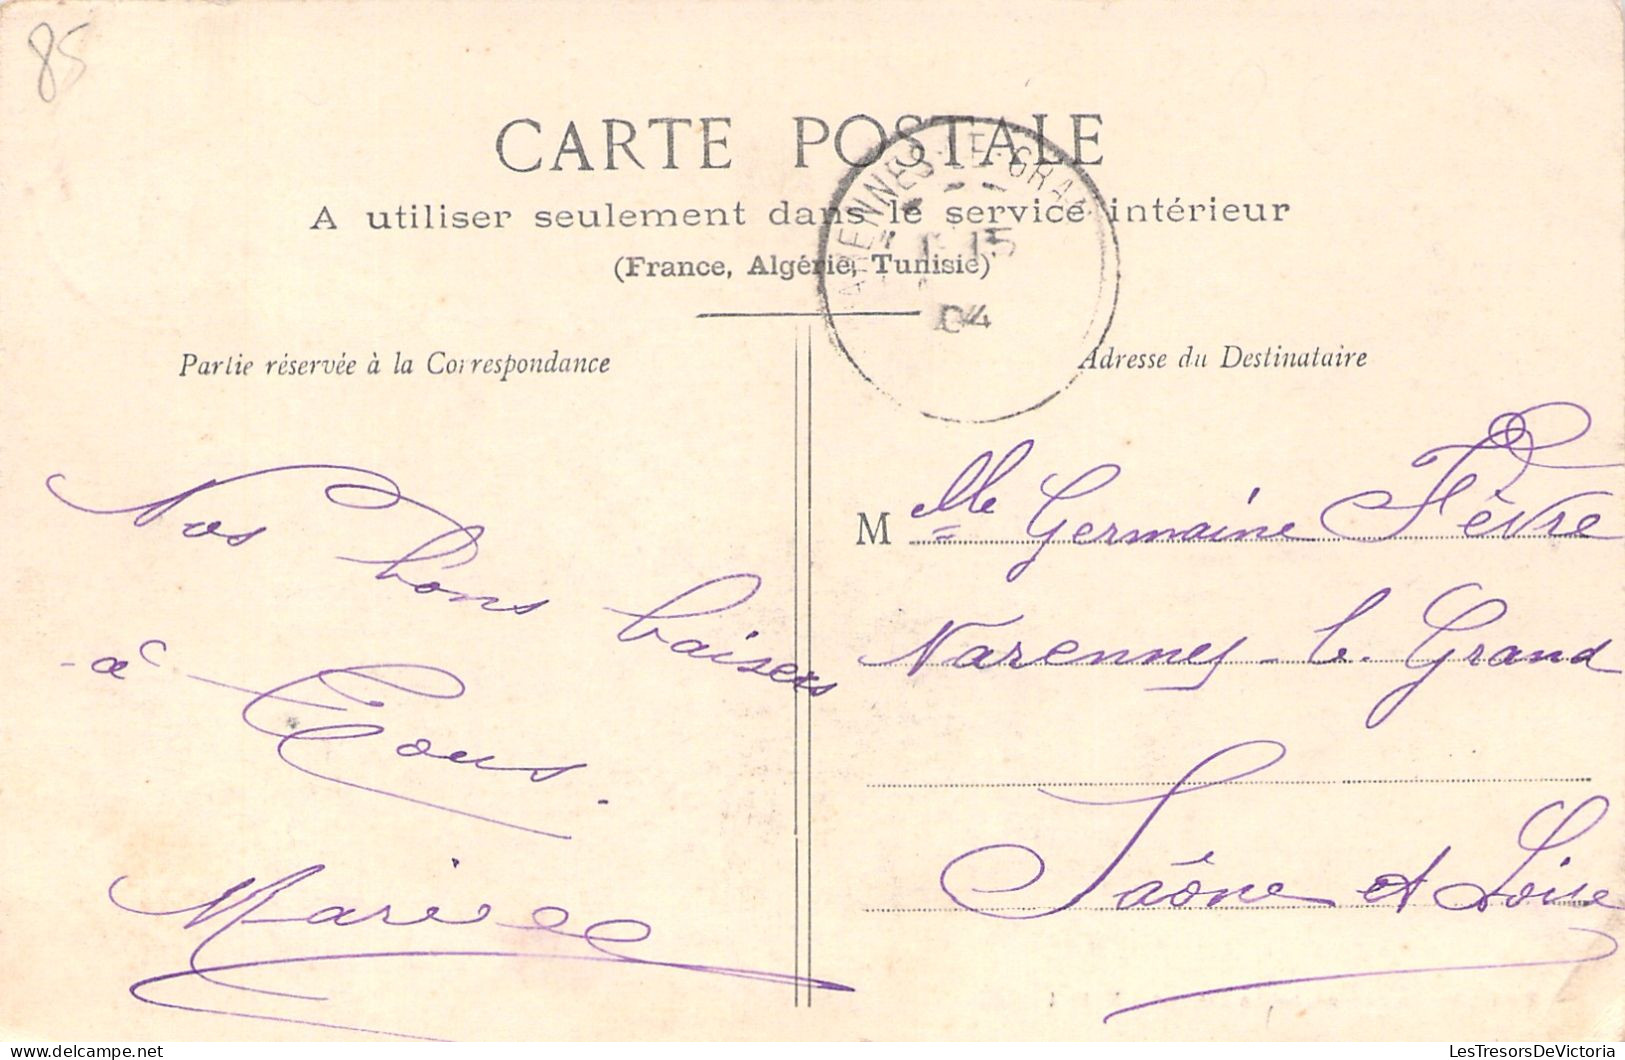 85
CARTE POSTALE
A utiliser seulement dans le service intérieur
(France, Algérie, Tunisie)
ARENNES-LE-GRAN
15
04
Partie réservée à la Correspondance
Adresse du Destinataire
Nos bons baisers
à Tous.
Marie
M elle Germaine Fèvre
Varennes-le-Grand
Saône et Loire
delcampe.net
LesTresorsDeVictoria